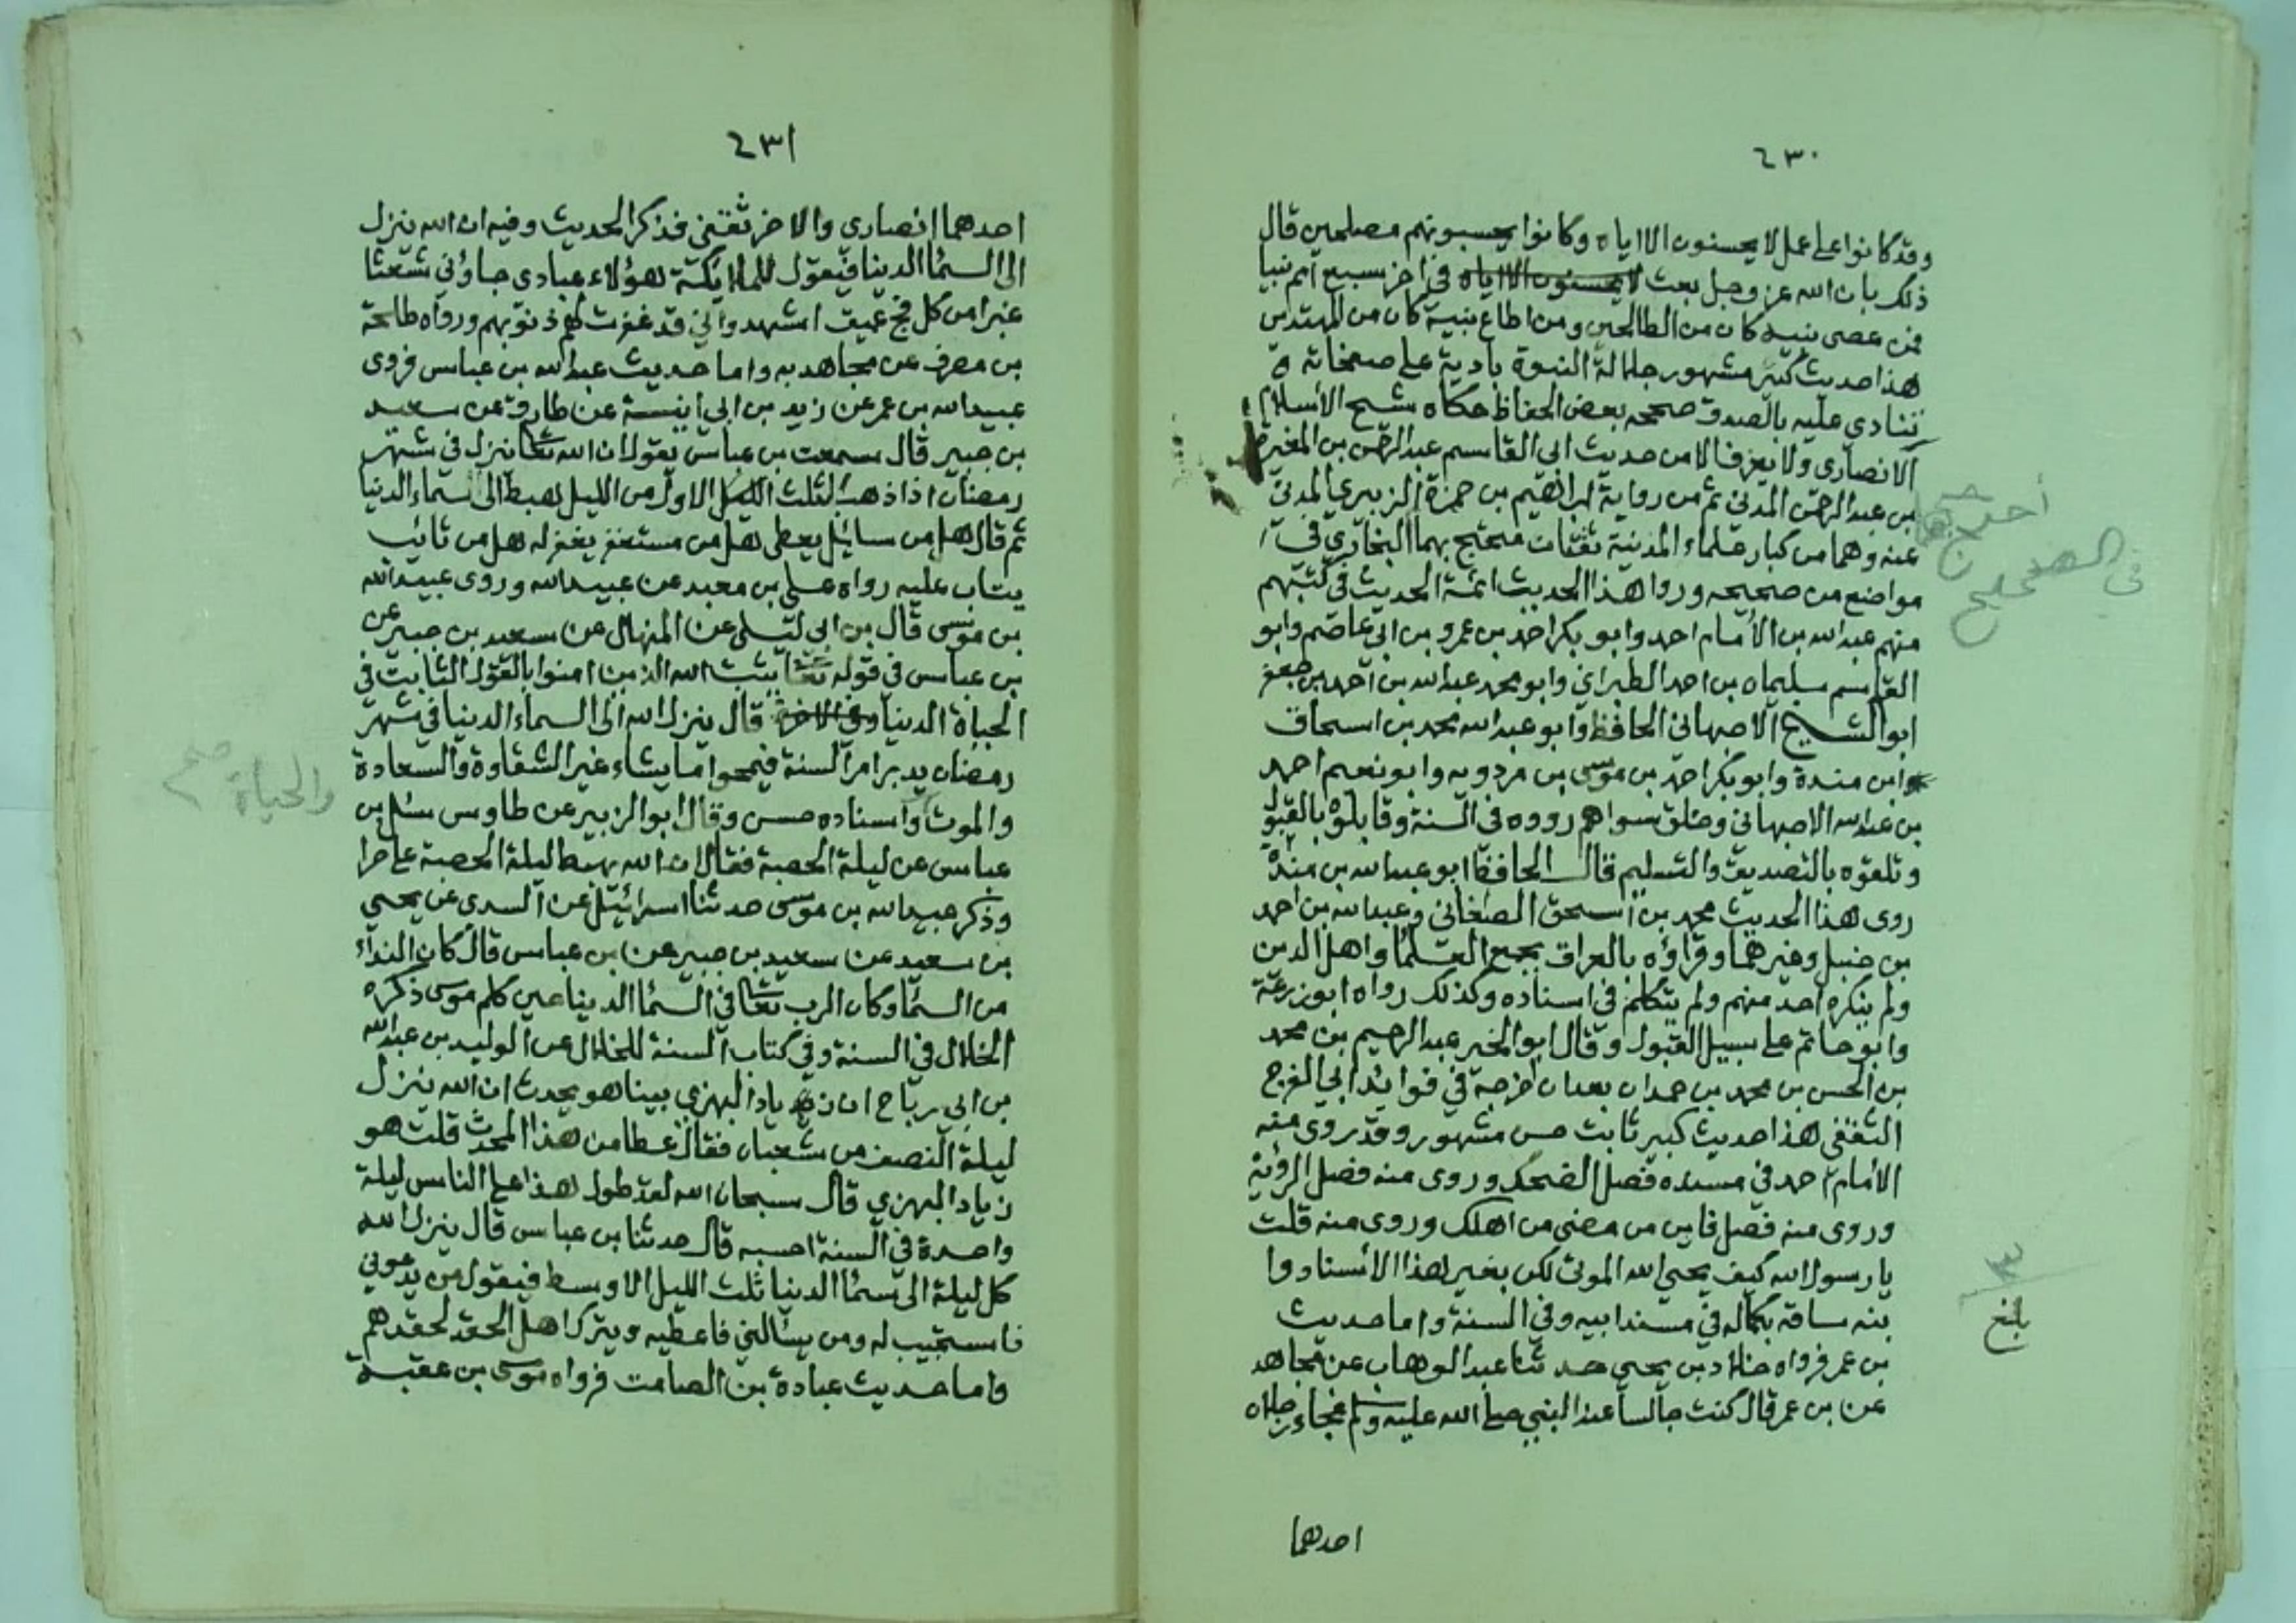 ٤٣٠
وقد كانوا على عمل لا يحسنون الا اياه وكانوا يحسبونهم مصلحين قال
ذلك بان الله عز وجل بعث لا يحسنون الا اياه في اخر سبع امم نبيا
فمن عصى نبيه كان من الظالمين ومن اطاع نبيه كان من المهتدين
هذا حديث كبير مشهور جلالة النبوة بادية على صفحاته
تنادي عليه بالصدق صححه بعض الحفاظ حكاه شيخ الأسلام
الانصاري ولا يعرف الا من حديث ابي القاسم عبد الرحمن بن المغيرة
بن عبد الرحمن المدني ثم من رواية ابراهيم بن حمزة الزبيري المدني
عنه وهما من كبار علماء المدينة ثقتان محتج بهما البخاري في
احتج بهما
في الصحيح
مواضع من صحيحه وروا هذا الحديث ائمة الحديث في كتبهم
منهم عبد الله بن الأمام احد وابو بكر احد بن عمرو بن ابي عاصم وابو
القاسم سليمان بن احد الطبراني وابو محمد عبد الله بن احمد بن جعفر
ابو الشيخ الاصبهاني الحافظ وابو عبد الله محمد بن اسحاق
وابن مندة وابو بكر احمد بن موسى بن مردويه وابو نعيم احمد
بن عبد الله الاصبهاني وخلق سواهم رووه في السنة وقابلوه بالقبول
وتلقوه بالتصديق والتسليم قال الحافظ ابو عبد الله بن مندة
روى هذا الحديث محمد بن اسحق الصغاني وعبد الله بن احمد
بن حنبل وغيرهما وقراؤه بالعراق بجمع العلما واهل الدين
ولم ينكره احد منهم ولم يتكلم في اسناده وكذلك رواه ابو زرعة
وابو حاتم على سبيل القبول وقال ابو الخير عبد الرحيم بن محمد
بن الحسن بن محمد بن حمدان بعد ان اخرجه في فوائد ابي الفرج
الثقفي هذا حديث كبير ثابت حسن مشهور وقد روى منه
الأمام احد في مسنده فصل الضحك وروى منه فصل الرؤية
وروى منه فصل فاين من مضى من اهلك وروى منه قلت
يا رسول الله كيف يحيي الله الموتى لكن بغير هذا الأسناد وا
بنه ساقه بكماله في مسند ابيه وفي السنة واما حديث
بلغ
بن عمر فرواه خلاد بن يحيى حدثنا عبد الوهاب عن مجاهد
عن بن عمر قال كنت جالسا عند النبي صلى الله عليه وسلم فجاء رجلان
احدهما
٤٣١
احدهما انصاري والاخر ثقفي فذكر الحديث وفيه ان الله ينزل
الى السما الدينا فيقول للملائكة هؤلاء عبادي جاؤني شعثا
غبرا من كل فج عميق اشهدوا اني قد غفرت لهم ذنوبهم ورواه طلحة
بن مصرف عن مجاهد به واما حديث عبد الله بن عباس فروى
عبيد الله بن عمر عن زيد بن ابي انيسة عن طارق عن سعيد
بن جبير قال سمعت بن عباس يقول ان الله تعا ينزل في شهر
رمضان اذا ذهب الثلث الليل الاول من الليل هبط الى سماء الدنيا
ثم قال هل من سائيل يعطى هل من مستغفر يغفر له هل من تائب
يتاب عليه رواه علي بن معبد عن عبيد الله وروى عبيد الله
بن موسى قال بن ابي ليلى عن المنهال عن سعيد بن جبير عن
بن عباس في قوله تعا يثبت الله الذين امنوا بالقول الثابت في
الحياة الدنيا وفي الاخرة قال ينزل الله الى السماء الدنيا في شهر
رمضان يدبر امر السنة فيمحوا ما يشاء غير الشقاوة والسعادة
والحياة صح
والموت واسناده حسن وقال ابو الزبير عن طاوس سئل بن
عباس عن ليلة الحصبة فقال ان الله يهبط ليلة الحصبة على حرا
وذكر عبيد الله بن موسى حدثنا اسرائيل عن السدى عن يحيى
بن سعيد عن سعيد بن جبير عن بن عباس قال كان النداء
من السما وكان الرب تعا في السما الدينا حين كلم موسى ذكره
الخلال في السنة وفي كتاب السنة للخلال عن الوليد بن عبد الله
بن ابي رباح ان زيادا البهزي بينا هو يحدث ان الله ينزل
ليلة النصف من شعبان فقال عطا من هذا المحدث قلت هو
زياد البهزي قال سبحان الله لقد طول هذا على الناس ليلة
واحدة في السنة احسبه قال حدثنا بن عباس قال ينزل الله
كل ليلة الى سما الدنيا ثلث الليل الاوسط فيقول من يدعوني
فاستجيب له ومن يسألني فاعطيه ويترك اهل الحقد لحقدهم
واما حديث عبادة بن الصامت فرواه موسى بن عقبة